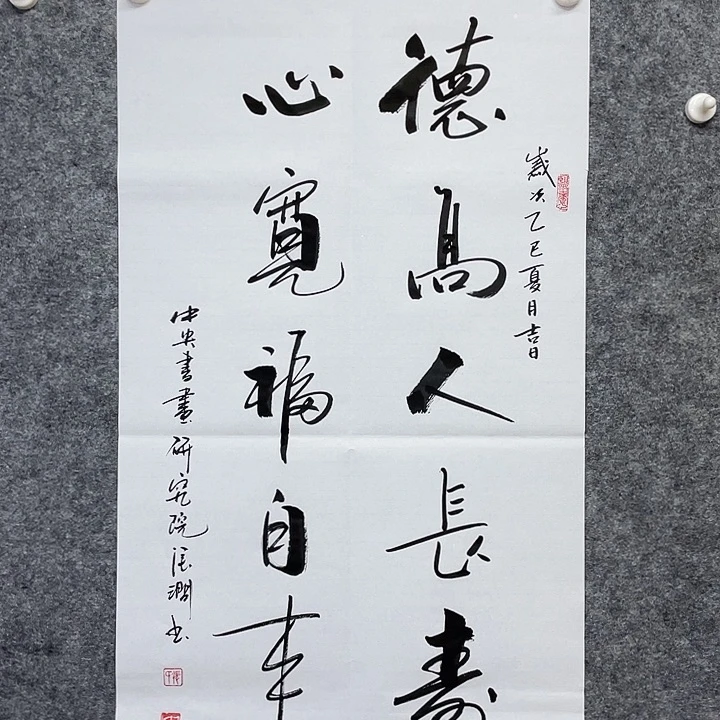 歲次乙巳夏月吉日
德高人長壽
心寬福自來
中央書畫研究院張潤書